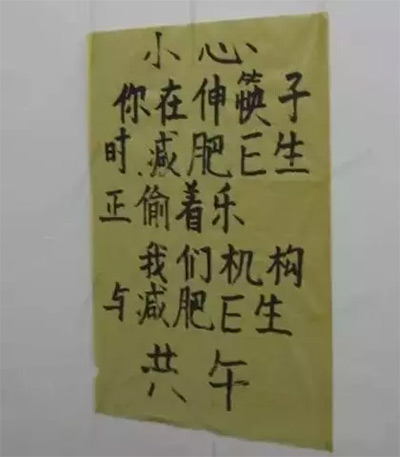 小心
你在伸筷子
时减肥E生
正偷着乐
我们机构
与减肥E生
共午